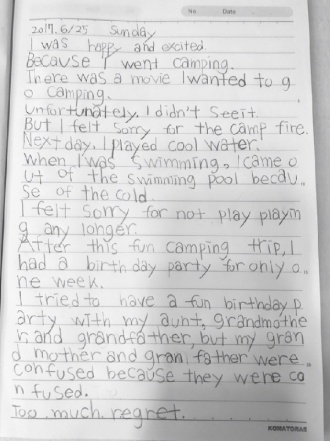 No. Date
2017. 6/25 Sunday
I was happy and excited.
Because I went camping.
There was a movie I wanted to g
o camping.
Unfortunately, I didn't see it.
But I felt sorry for the camp fire.
Next day, I played cool water.
When I was swimming, I came o
ut of the swimming pool becau
se of the cold.
I felt sorry for not play playin
g any longer.
After this fun camping trip, I
had a birthday party for only o
ne week.
I tried to have a fun birthday p
arty with my aunt, grandmothe
r, and grandfather, but my gran
d mother and gran father were
confused because they were co
n fused.
Too much regret.
KOMATORAE